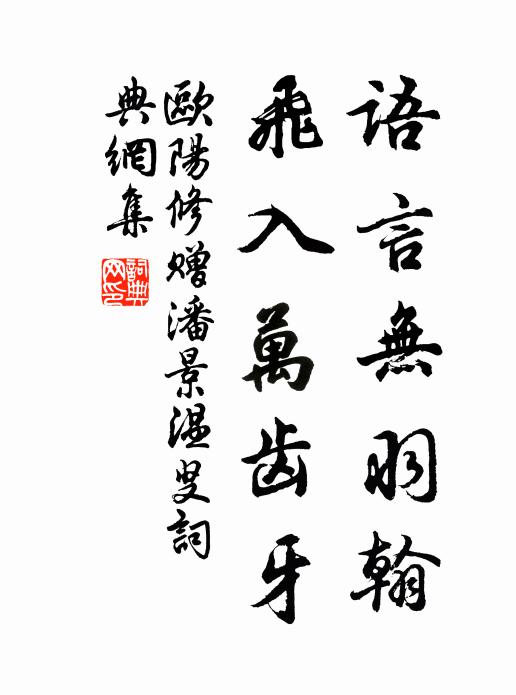 語言無羽翰
飛入萬齿牙
歐陽修赠潘景温叟詞
典網集
詞典网印